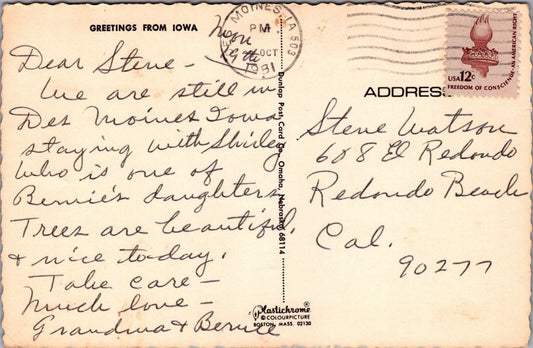 GREETINGS FROM IOWA
MOINES, IA 503
PM
OCT
1981
Mon
19th
USA 12c
FREEDOM OF CONSCIENCE-AN AMERICAN RIGHT
ADDRESS
Dear Steve -
We are still in
Des Moines Iowa
staying with Shirley
who is one of
Bernice's daughters
Trees are beautiful,
& nice today.
Take care -
Much love -
Grandma & Bernice
Dunlop Post Card Co. Omaha, Nebraska 68114
Steve Watson
608 El Redondo
Redondo Beach
Cal.
90277
Plastichrome®
© COLOURPICTURE
BOSTON, MASS. 02130